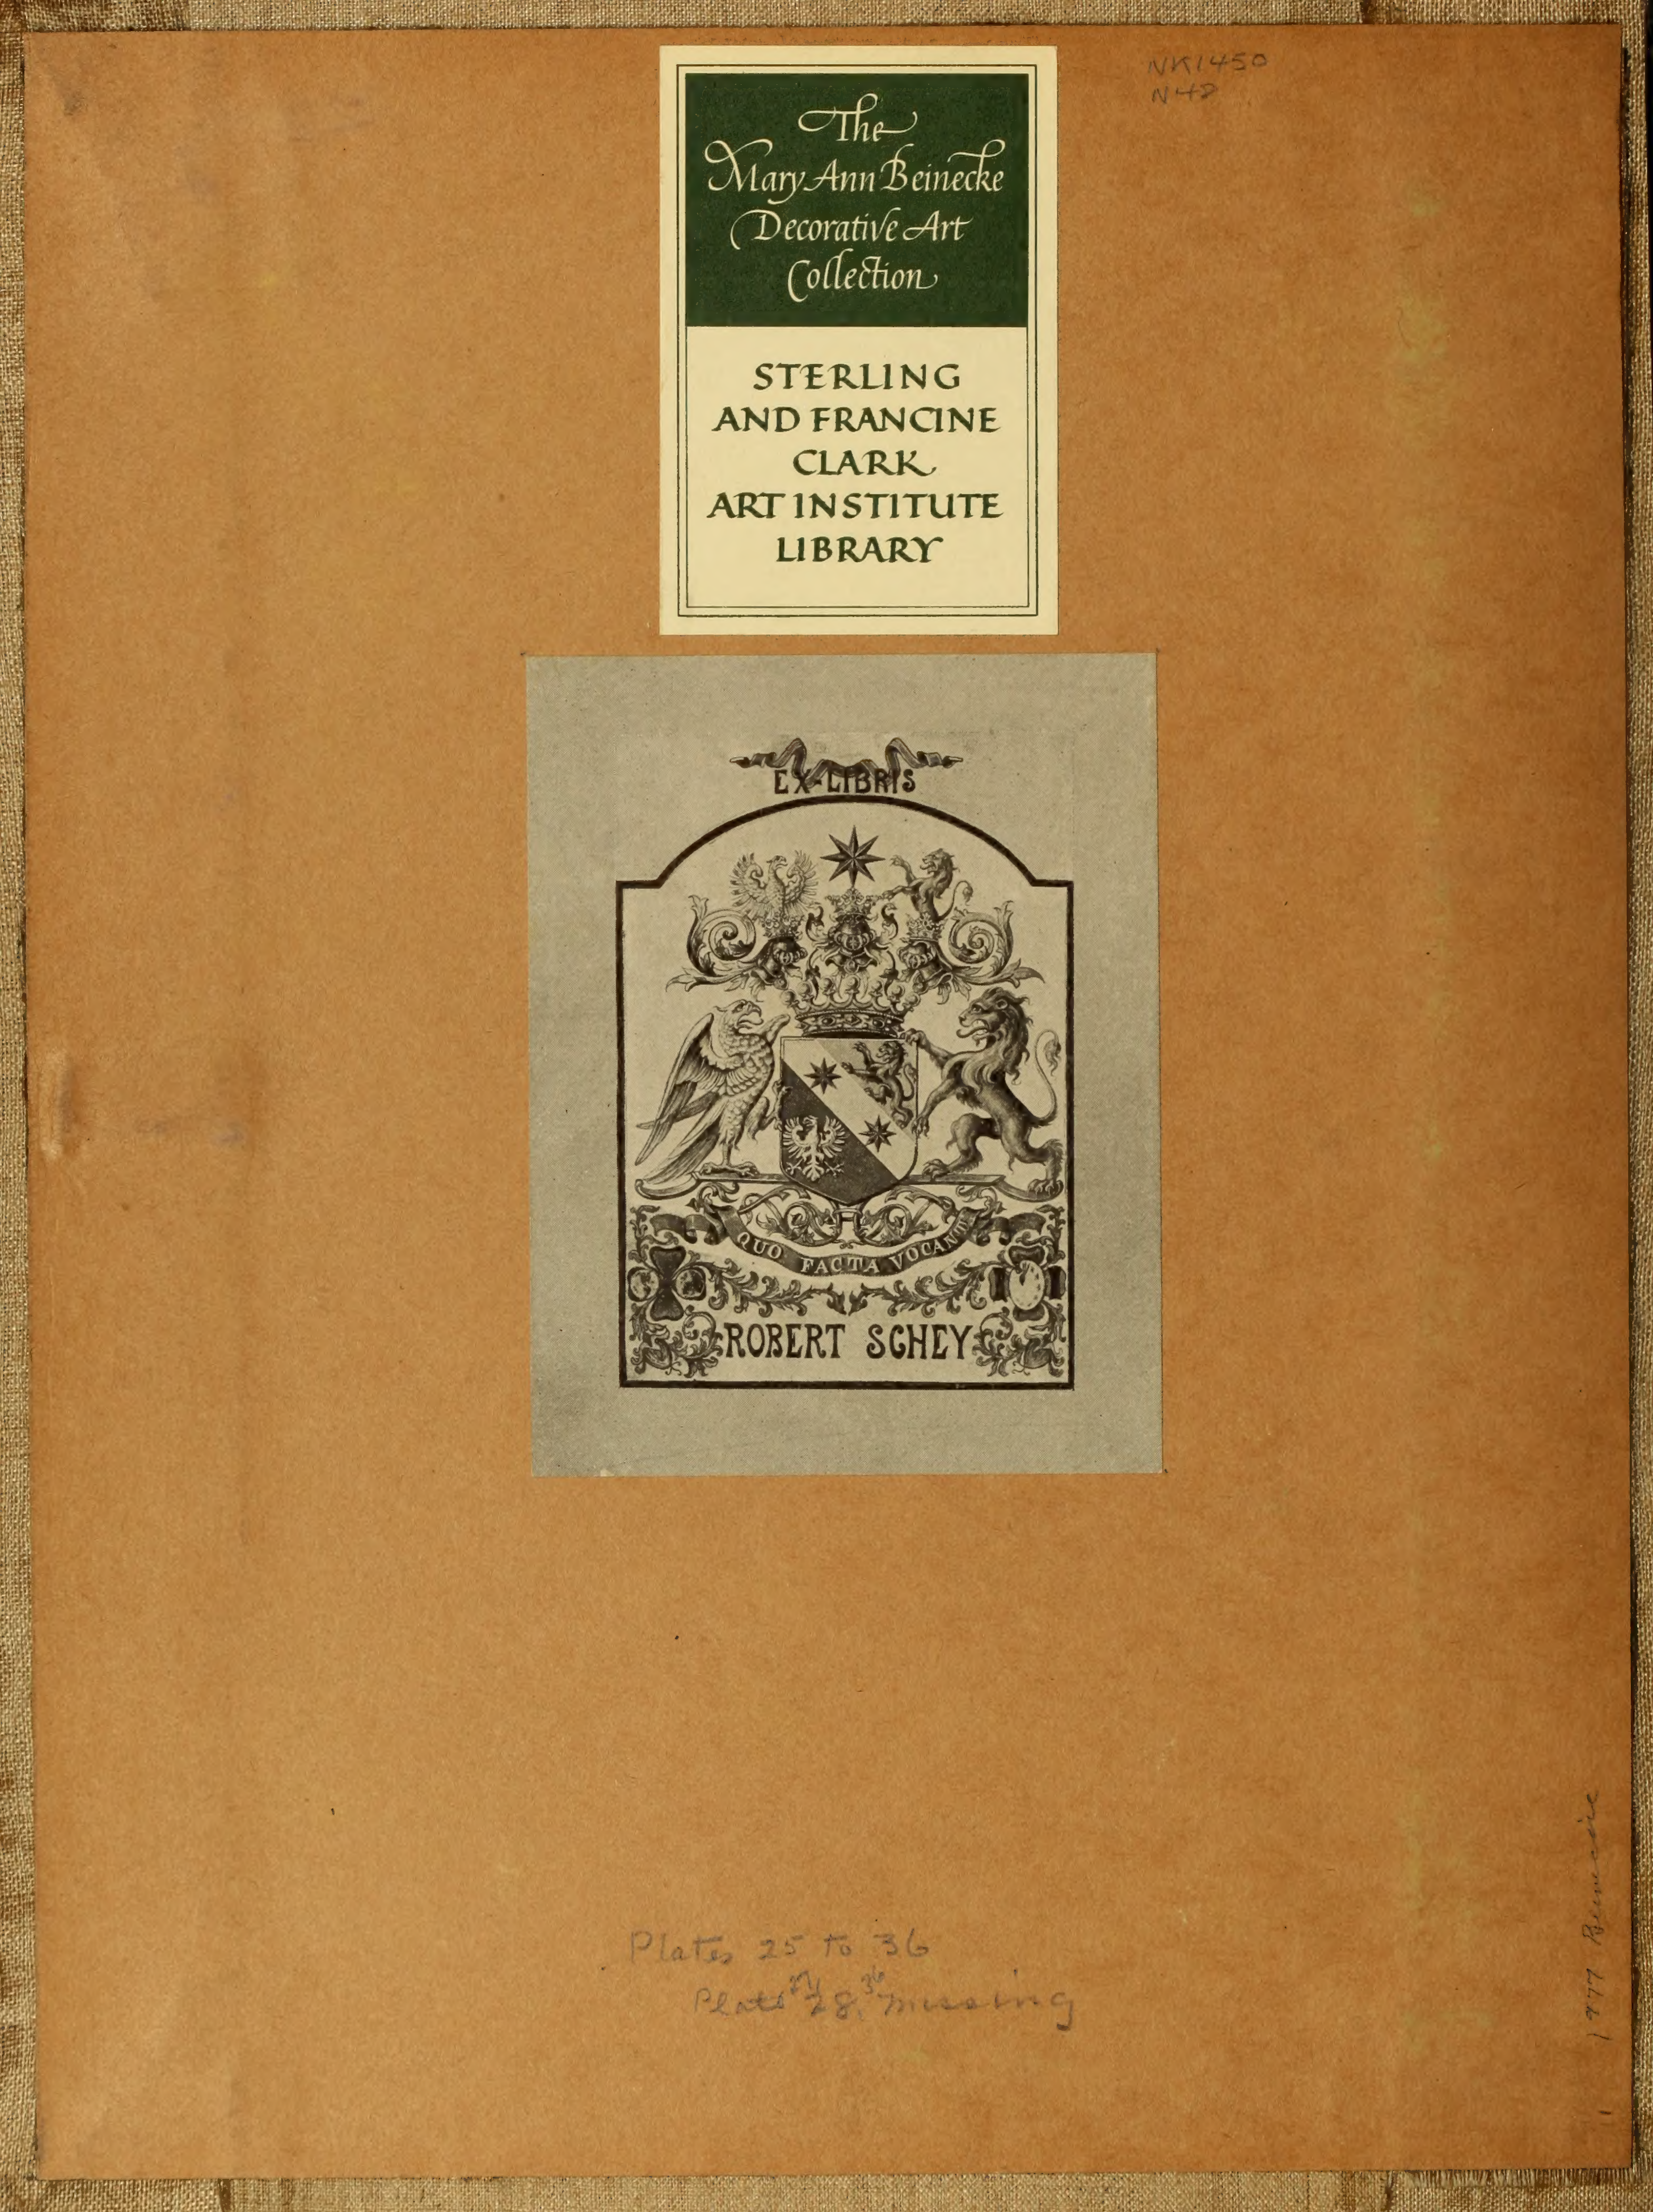 NK1450
N42
The
Mary Ann Beinecke
Decorative Art
Collection
STERLING
AND FRANCINE
CLARK
ART INSTITUTE
LIBRARY
EX-LIBRIS
QUO FACTA VOCANT
ROBERT SCHEY
Plates 25 to 36
28, missing
1977